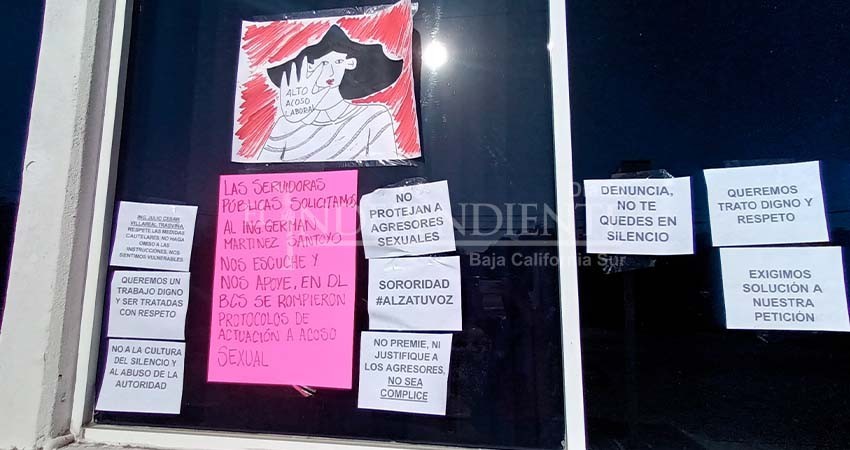 ALTO
ACOSO
LABORAL
ING. JULIO CESAR
VILLAREAL TRASVIÑA,
RESPETE LAS MEDIDAS
CAUTELARES, NO HAGA
OMISO A LAS
INSTRUCCIONES, NOS
SENTIMOS VULNERABLES
QUEREMOS UN
TRABAJO DIGNO
Y SER TRATADAS
CON RESPETO
NO A LA CULTURA
DEL SILENCIO Y
AL ABUSO DE LA
AUTORIDAD
LAS SERVIDORAS
PÚBLICAS SOLICITAMOS
AL ING GERMAN
MARTINEZ SANTOYO
NOS ESCUCHE Y
NOS APOYE, EN DL
BCS SE ROMPIERON
PROTOCOLOS DE
ACTUACIÓN A ACOSO
SEXUAL
NO
PROTEJAN A
AGRESORES
SEXUALES
SORORIDAD
#ALZATUVOZ
NO PREMIE, NI
JUSTIFIQUE A
LOS AGRESORES,
NO SEA
COMPLICE
DENUNCIA,
NO TE
QUEDES EN
SILENCIO
QUEREMOS
TRATO DIGNO Y
RESPETO
EXIGIMOS
SOLUCIÓN A
NUESTRA
PETICIÓN
INDEPENDIENTE
Baja California Sur